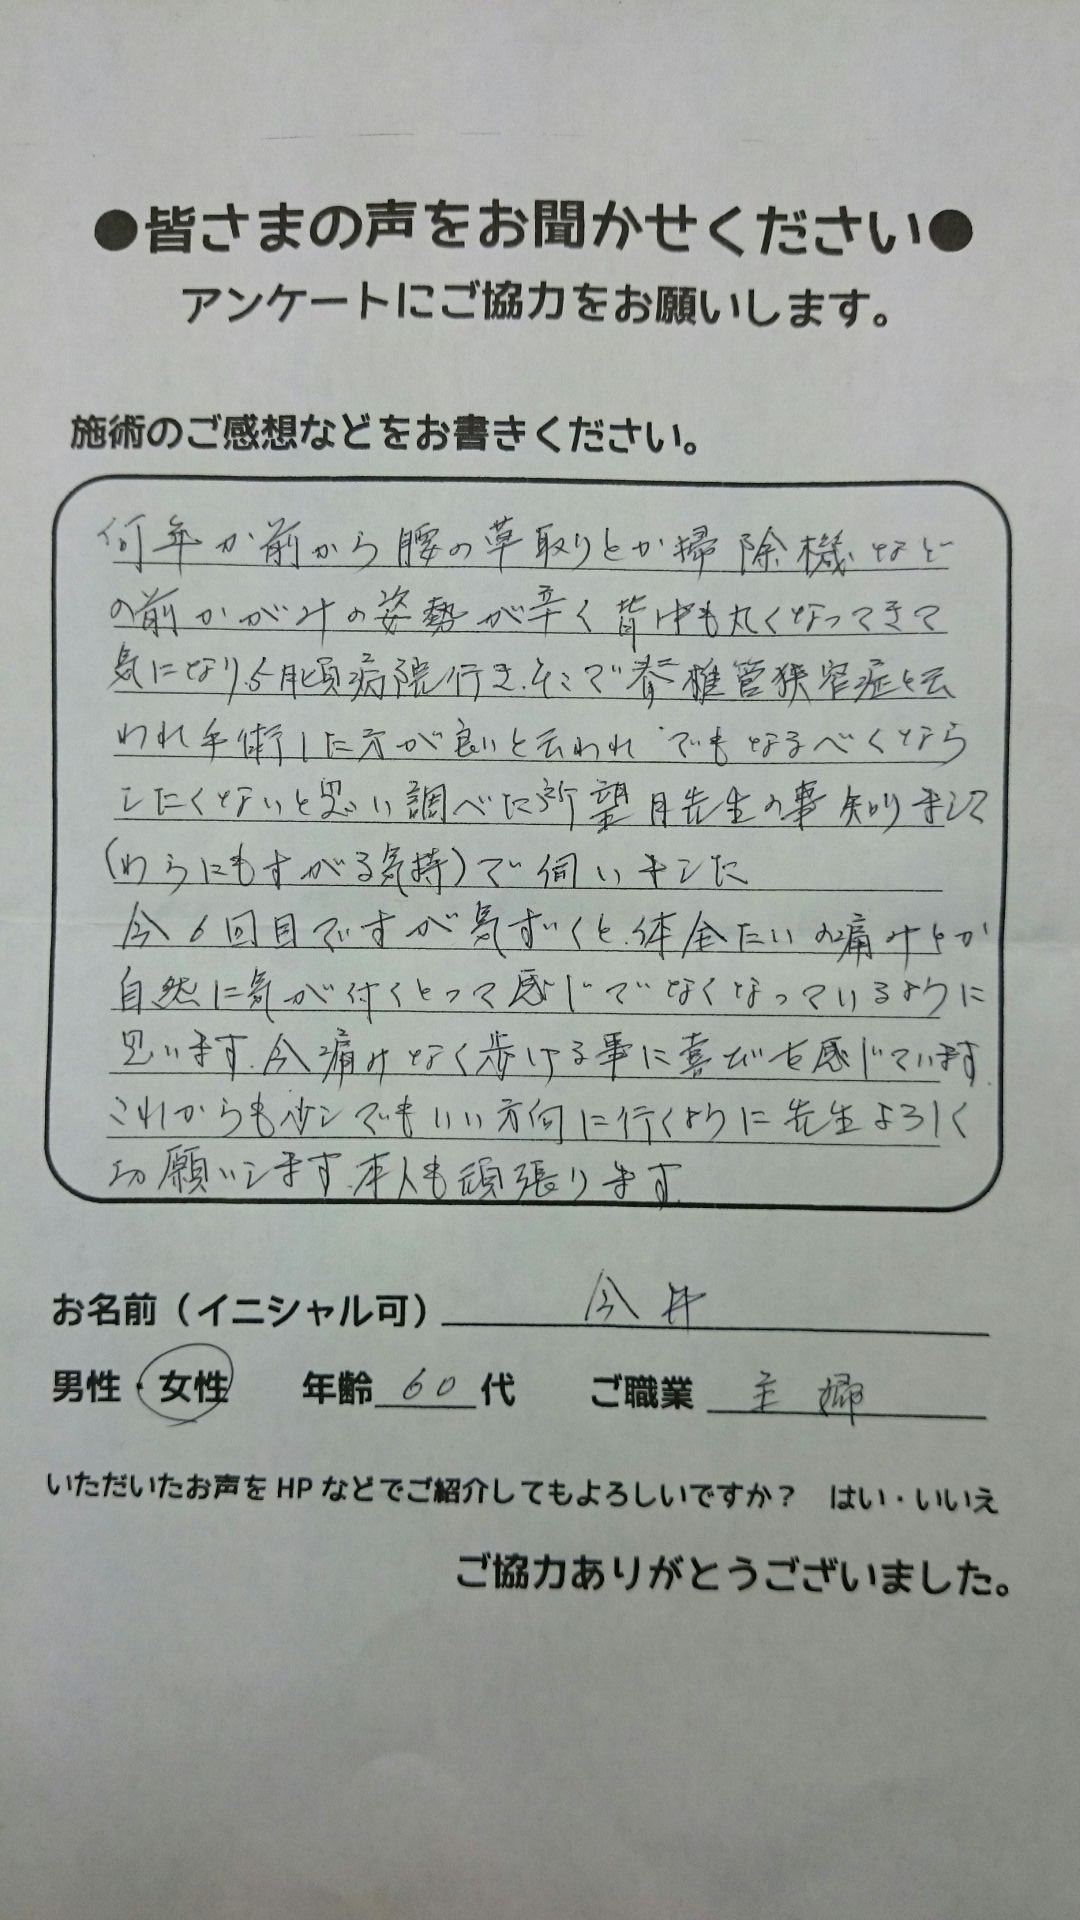 ●皆さまの声をお聞かせください●
アンケートにご協力をお願いします。
施術のご感想などをお書きください。
何年か前から腰の草取りとか掃除機など
の前かがみの姿勢が辛く背中も丸くなってきて
気になり、5月頃病院行き、そこで脊椎管狭窄症と云
われ手術した方が良いと云われ でもなるべくなら
したくないと思い調べた所望月先生の事知りまして
(わらにもすがる気持)で伺いました
今6回目ですが気ずくと、体全たいの痛みとか
自然に気が付くとって感じでなくなっているように
思います。今痛みなく歩ける事に喜びを感じています。
これからも少しでもいい方向に行くように先生よろしく
お願いします。本人も頑張ります。
お名前（イニシャル可） 今井
男性・女性 年齢 60 代 ご職業 主婦
いただいたお声を HP などでご紹介してもよろしいですか？ はい・いいえ
ご協力ありがとうございました。